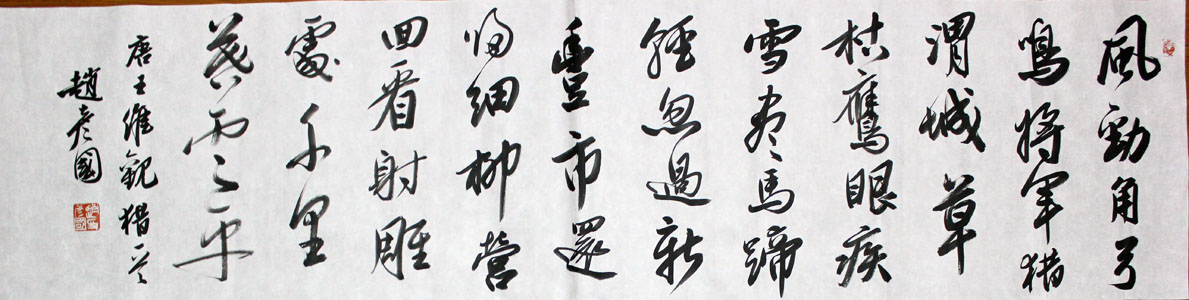 風勁角弓
鳴将军猎
渭城草
枯鷹眼疾
雪尽馬蹄
輕忽過新
豊市還
归細柳營
回看射雕
處千里
暮雲平
唐王維觀猎
趙彦國